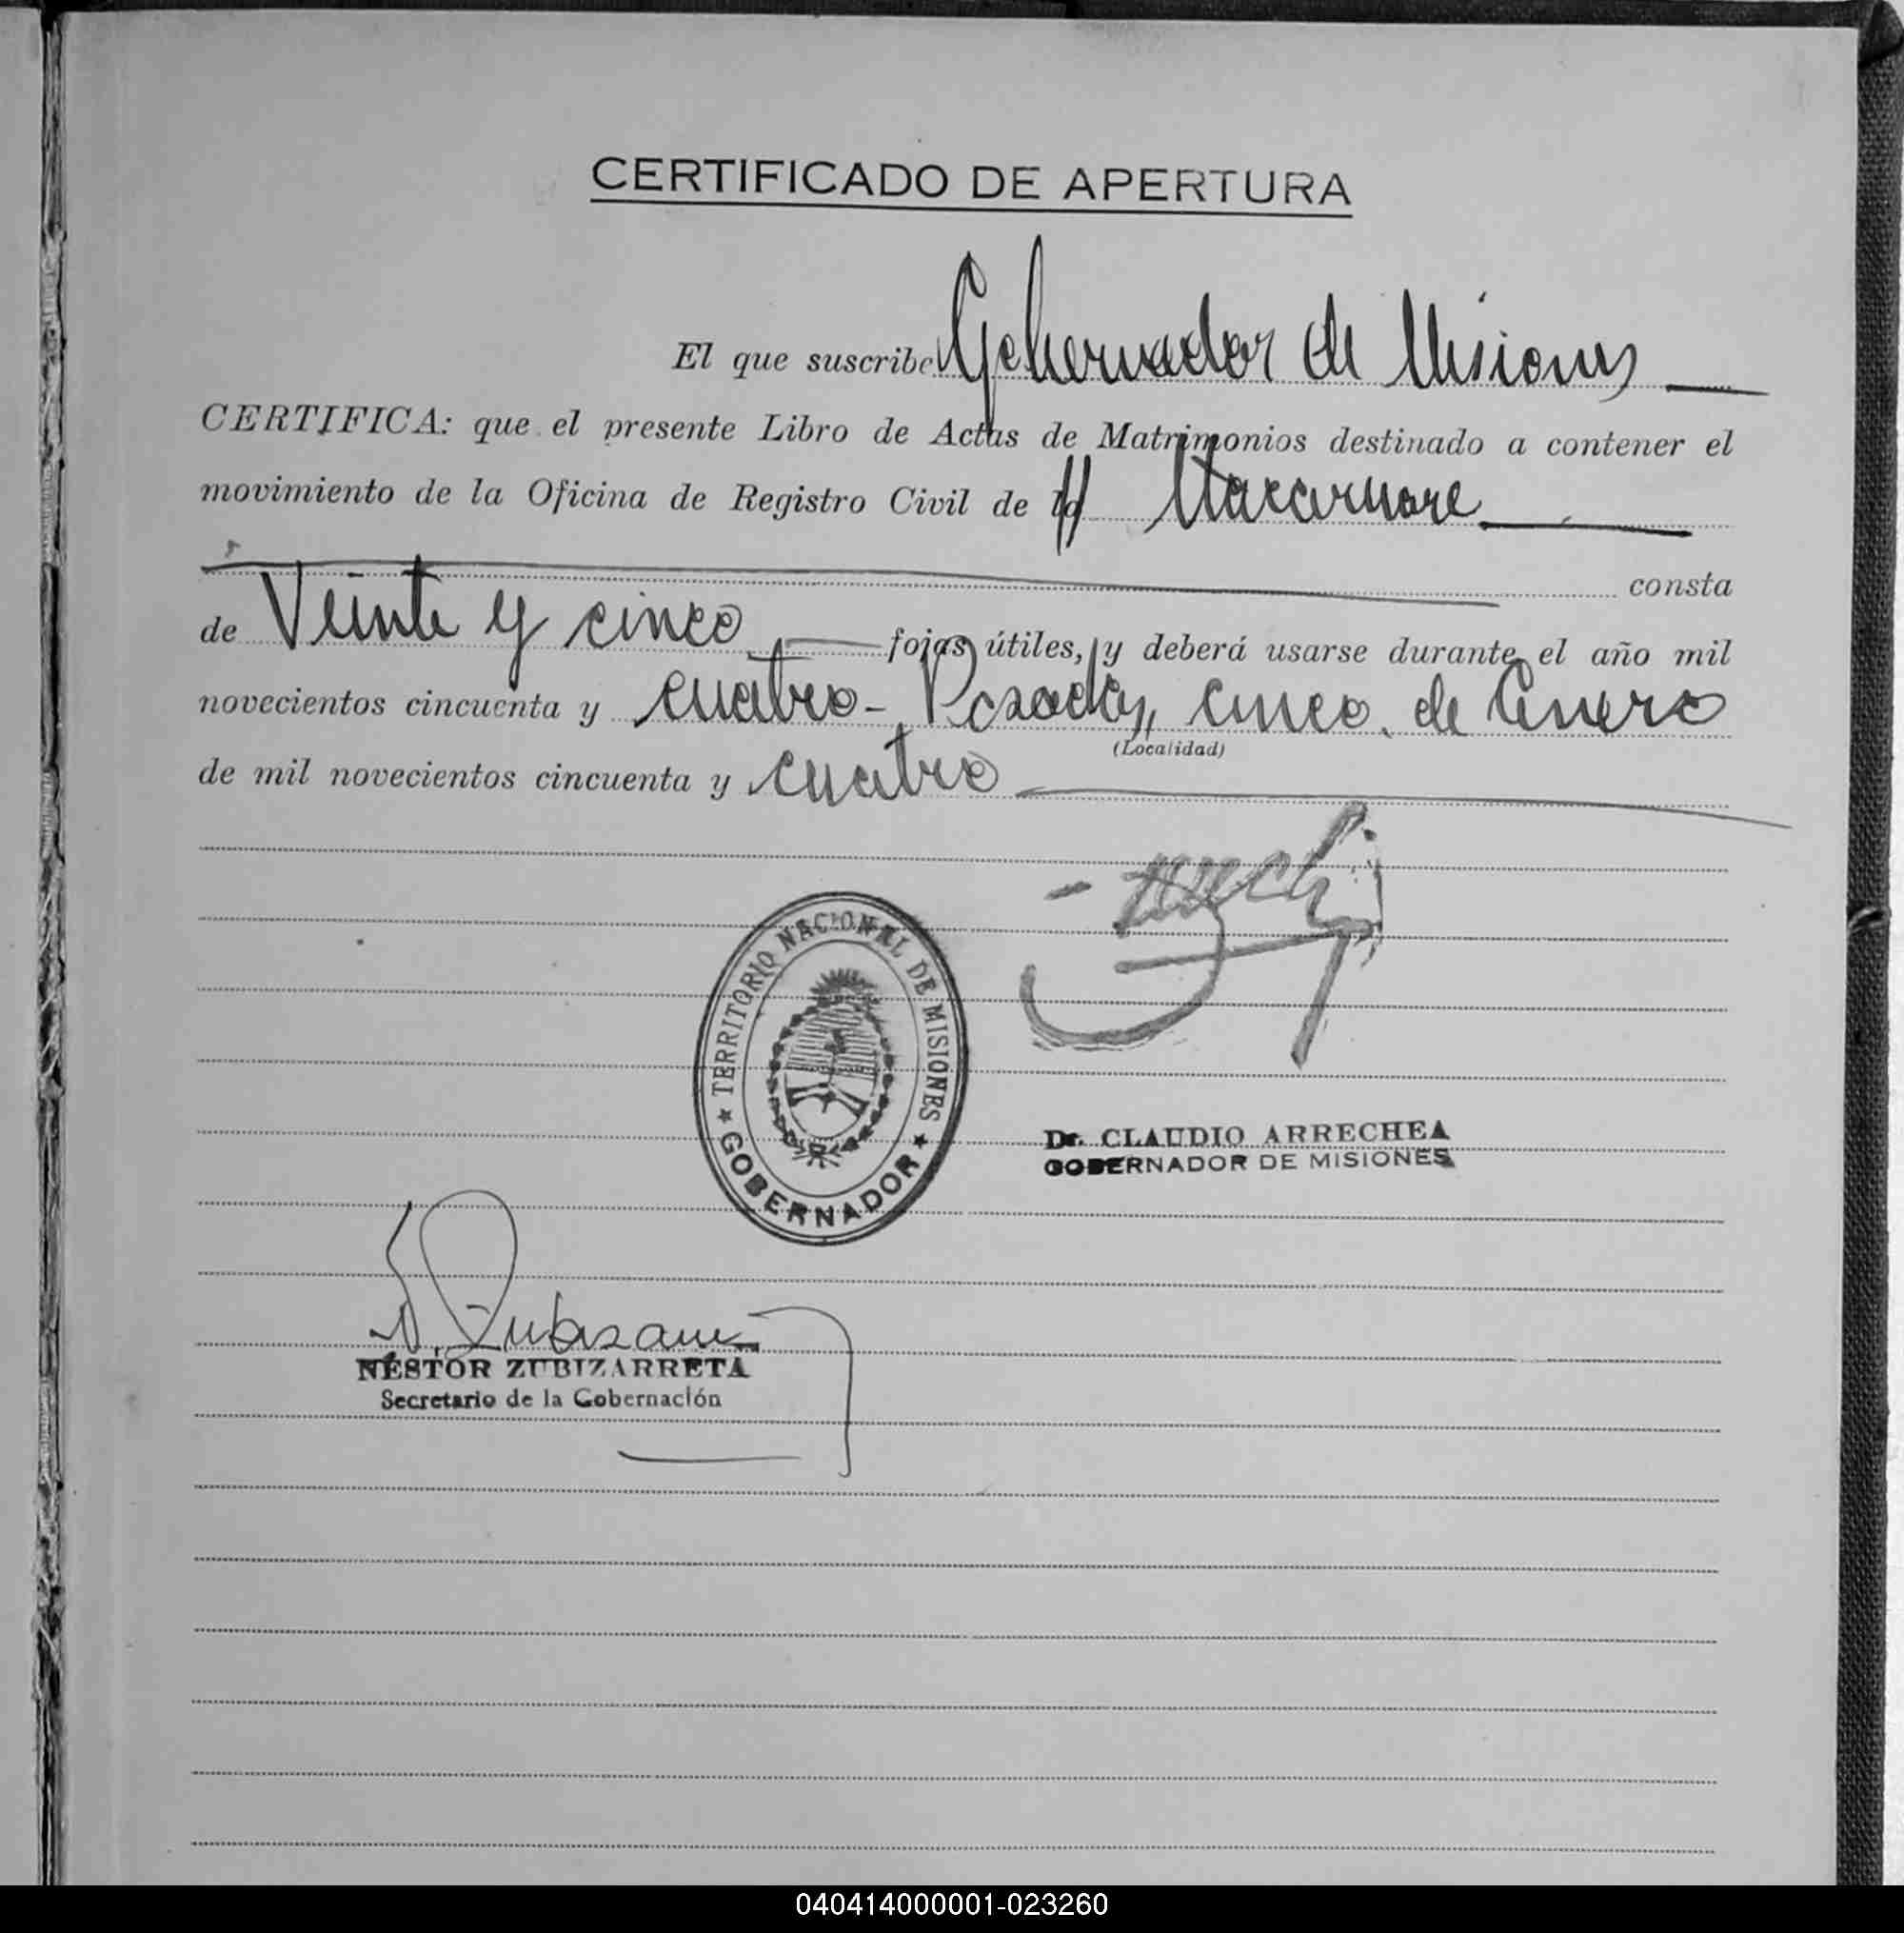 CERTIFICADO DE APERTURA
El que suscribe Gobernador de Misiones
CERTIFICA: que el presente Libro de Actas de Matrimonios destinado a contener el
movimiento de la Oficina de Registro Civil de la
consta
de Veinte y cinco fojas útiles, y deberá usarse durante el año mil
novecientos cincuenta y cuatro - Posadas, cinco de Enero
(Localidad)
de mil novecientos cincuenta y cuatro
TERRITORIO NACIONAL DE MISIONES
GOBERNADOR
Dr. CLAUDIO ARRECHEA
GOBERNADOR DE MISIONES
NÉSTOR ZUBIZARRETA
Secretario de la Gobernación
040414000001-023260